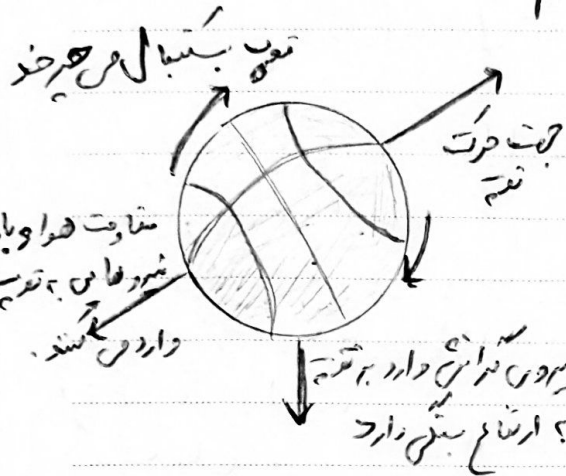 توپ بسکتبال می چرخد
جهت حرکت
توپ
مقاومت هوا و با
نیروهایی به توپ
وارد می کنند.
یروی گرانشی وارد بر توپ
به ارتفاع بستگی دارد